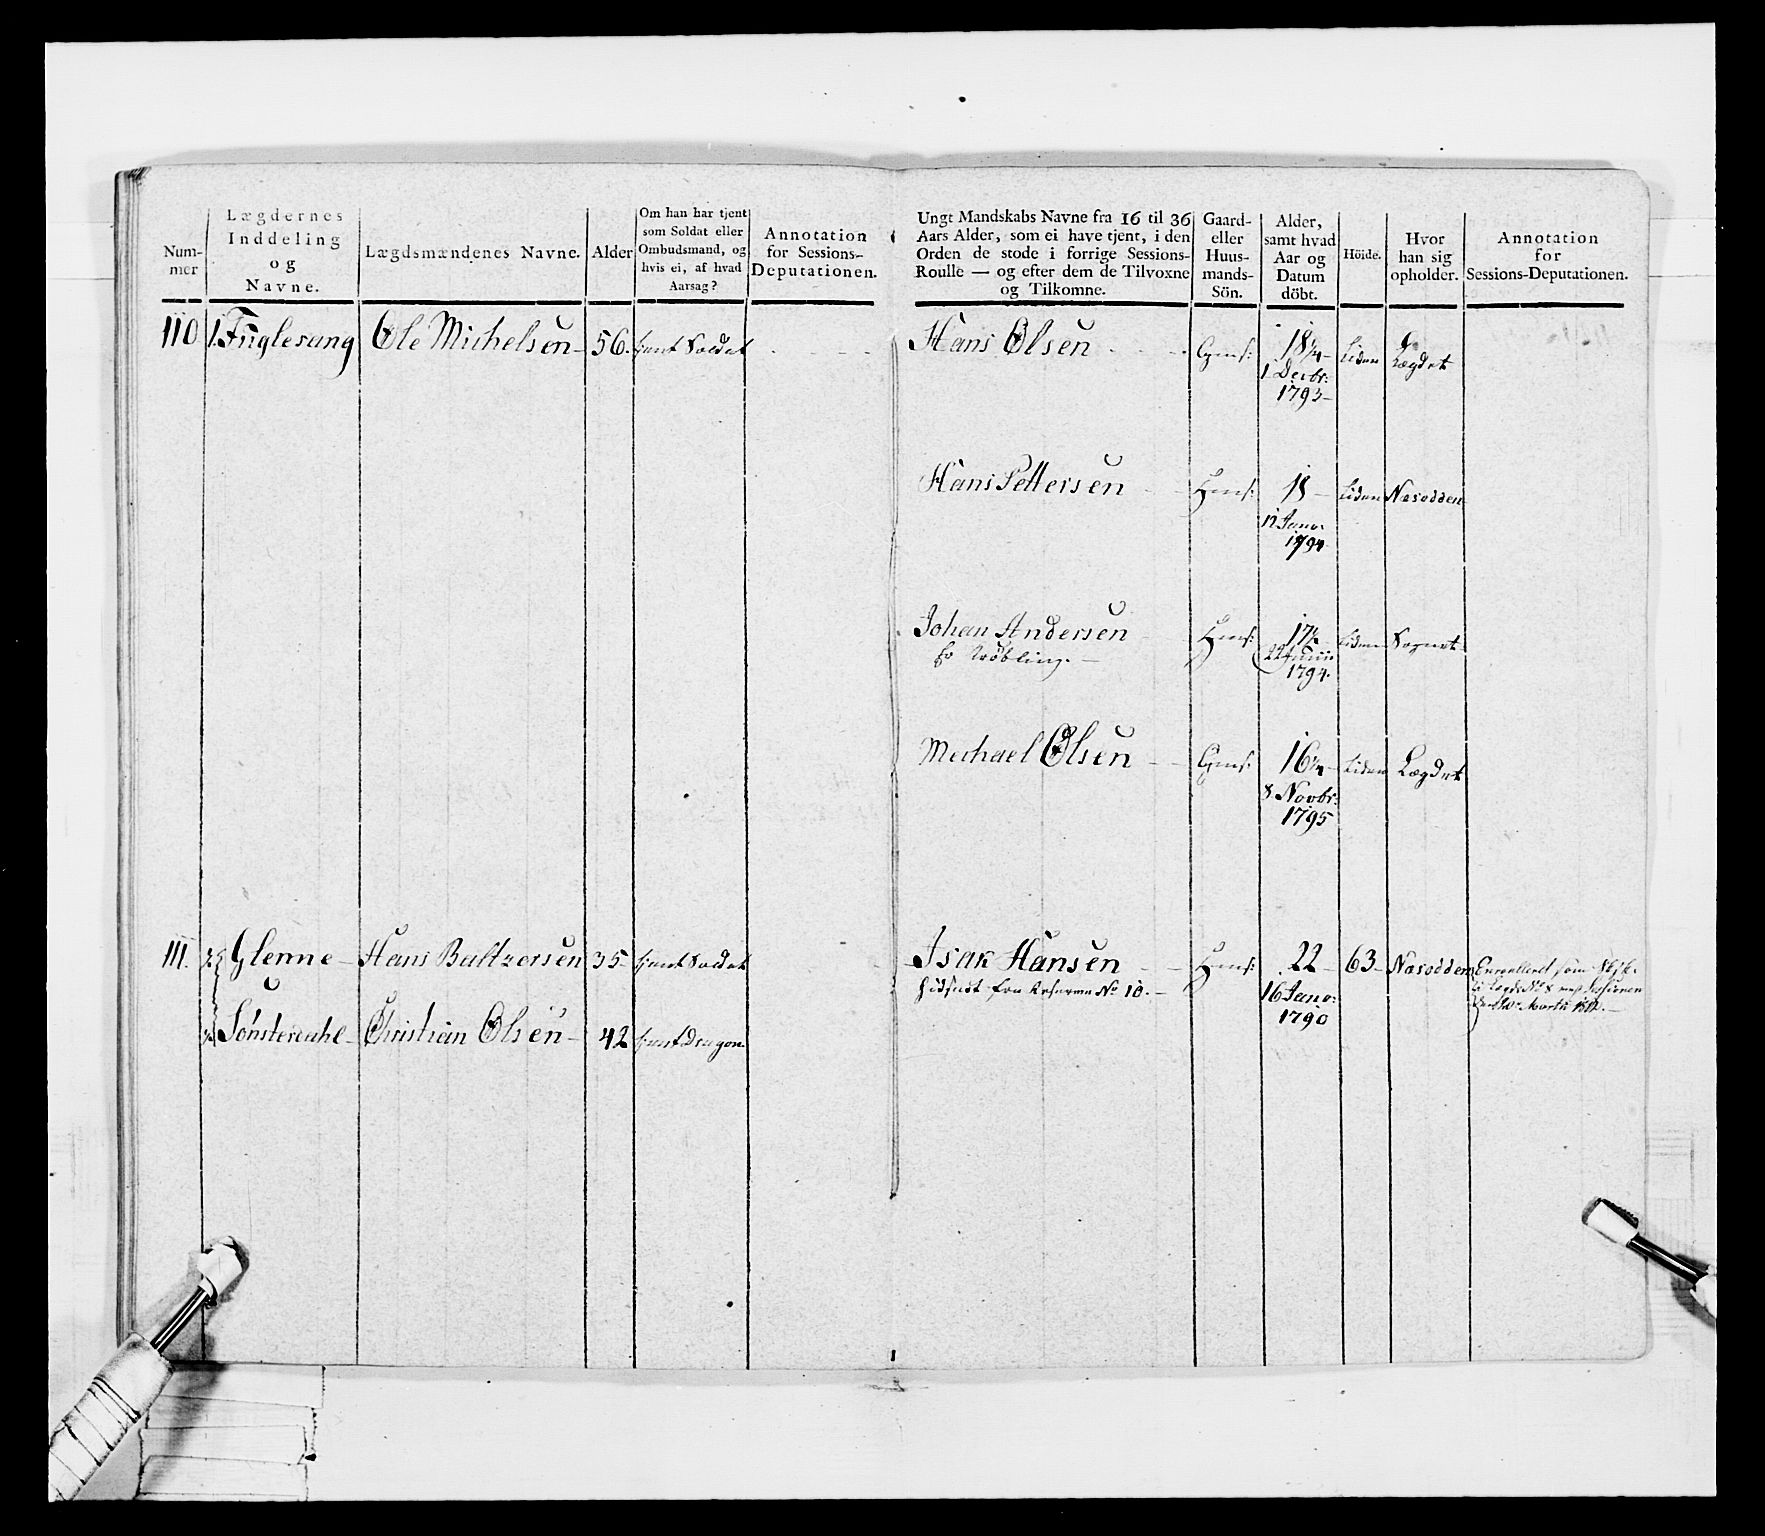 Num-
mer
Lægdernes
Inddeling
og
Navne.
Lægdsmændenes Navne.
Alder
Om han har tjent
som Soldat eller
Ombudsmand, og
hvis ei, af hvad
Aarsag?
Annotation
for Sessions-
Deputationen.
Ungt Mandskabs Navne fra 16 til 36
Aars Alder, som ei have tjent, i den
Orden de stode i forrige Sessions-
Roulle — og efter dem de Tilvoxne
og Tilkomne.
Gaard-
eller
Huus-
mands-
Sön.
Alder,
samt hvad
Aar og
Datum
döbt.
Höide.
Hvor
han sig
opholder.
Annotation
for
Sessions-Deputationen.
110 1. Fuglesang Ole Michelsen 56. tjent Soldat Hans Olsen Gms: 18 1/4 Liden Lægdet
1 Decbr:
1793
Hans Pettersen Hms: 18 Liden Næsodden
12 Janv:
1794
Johan Andersen Hms: 17 1/2 Liden Sognet
22 Junii
1794.
Michael Olsen Gms: 16 1/4 Liden Lægdet
8 Novbr:
1795
111. Glenne Hans Baltzersen 35 tjent Soldat Isak Hansen Hms: 22 63 Næsodden Enroulleret som
fra No 10. 16 Janv:
1790
Sønsterdahl Christian Olsen 42 tjent Dragon